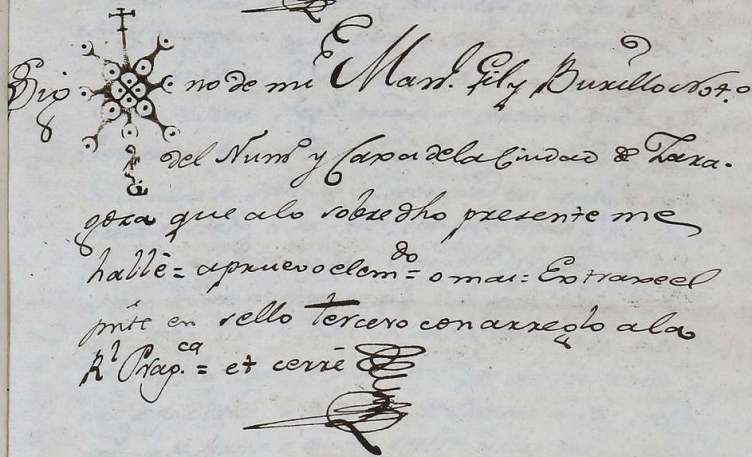 Sig no de mi Man.l Gil y Burillo Not.o
del Num.o y Caxa de la Ciudad de Zara-
goza que alo sobredho presente me
hallè = apruevo el em.do = o mas: Extraxe el
pnte en sello tercero con arreglo a la
R.l Prag.ca = et cerrè